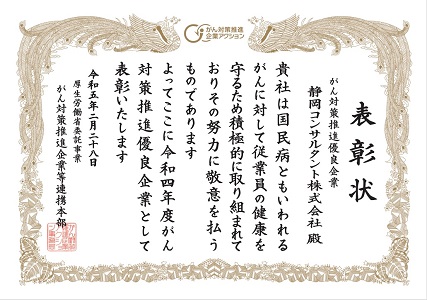 がん対策推進
企業アクション
表彰状
がん対策推進優良企業
静岡コンサルタント株式会社 殿
貴社は国民病ともいわれる
がんに対して従業員の健康を
守るため積極的に取り組まれて
おりその努力に敬意を払う
ものであります
よってここに令和四年度がん
対策推進優良企業として
表彰いたします
令和五年二月二十八日
厚生労働省委託事業
がん対策推進企業等連携本部